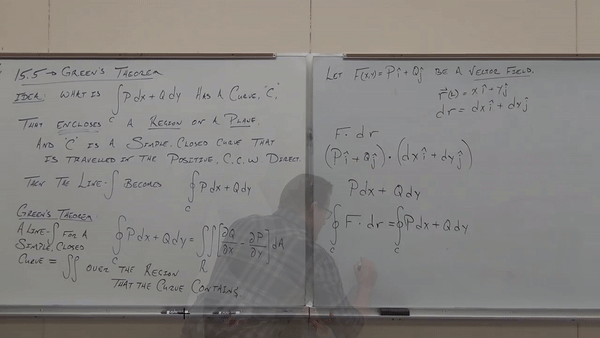 15.5 → GREEN'S THEOREM
IDEA: WHAT IS ∫_C Pdx + Qdy HAS A CURVE, "C"
THAT ENCLOSES A REGION ON A PLANE,
AND "C" IS A SIMPLE, CLOSED CURVE THAT
IS TRAVELLED IN THE POSITIVE, C.C.W. DIRECT.
THEN THE LINE-∫ BECOMES ∮_C Pdx + Qdy
GREEN'S THEOREM:
A LINE-∫ FOR A
SIMPLE, CLOSED
CURVE = ∬ OVER THE REGION
THAT THE CURVE CONTAINS
∮_C Pdx + Qdy = ∬_R [∂Q/∂x - ∂P/∂y] dA
LET F(x,y) = Pî + Qĵ BE A VECTOR FIELD.
r⃗(t) = xî + yĵ
dr = dxî + dyĵ
F · dr
(Pî + Qĵ) · (dxî + dyĵ)
Pdx + Qdy
∮_C F · dr = ∮_C Pdx + Qdy